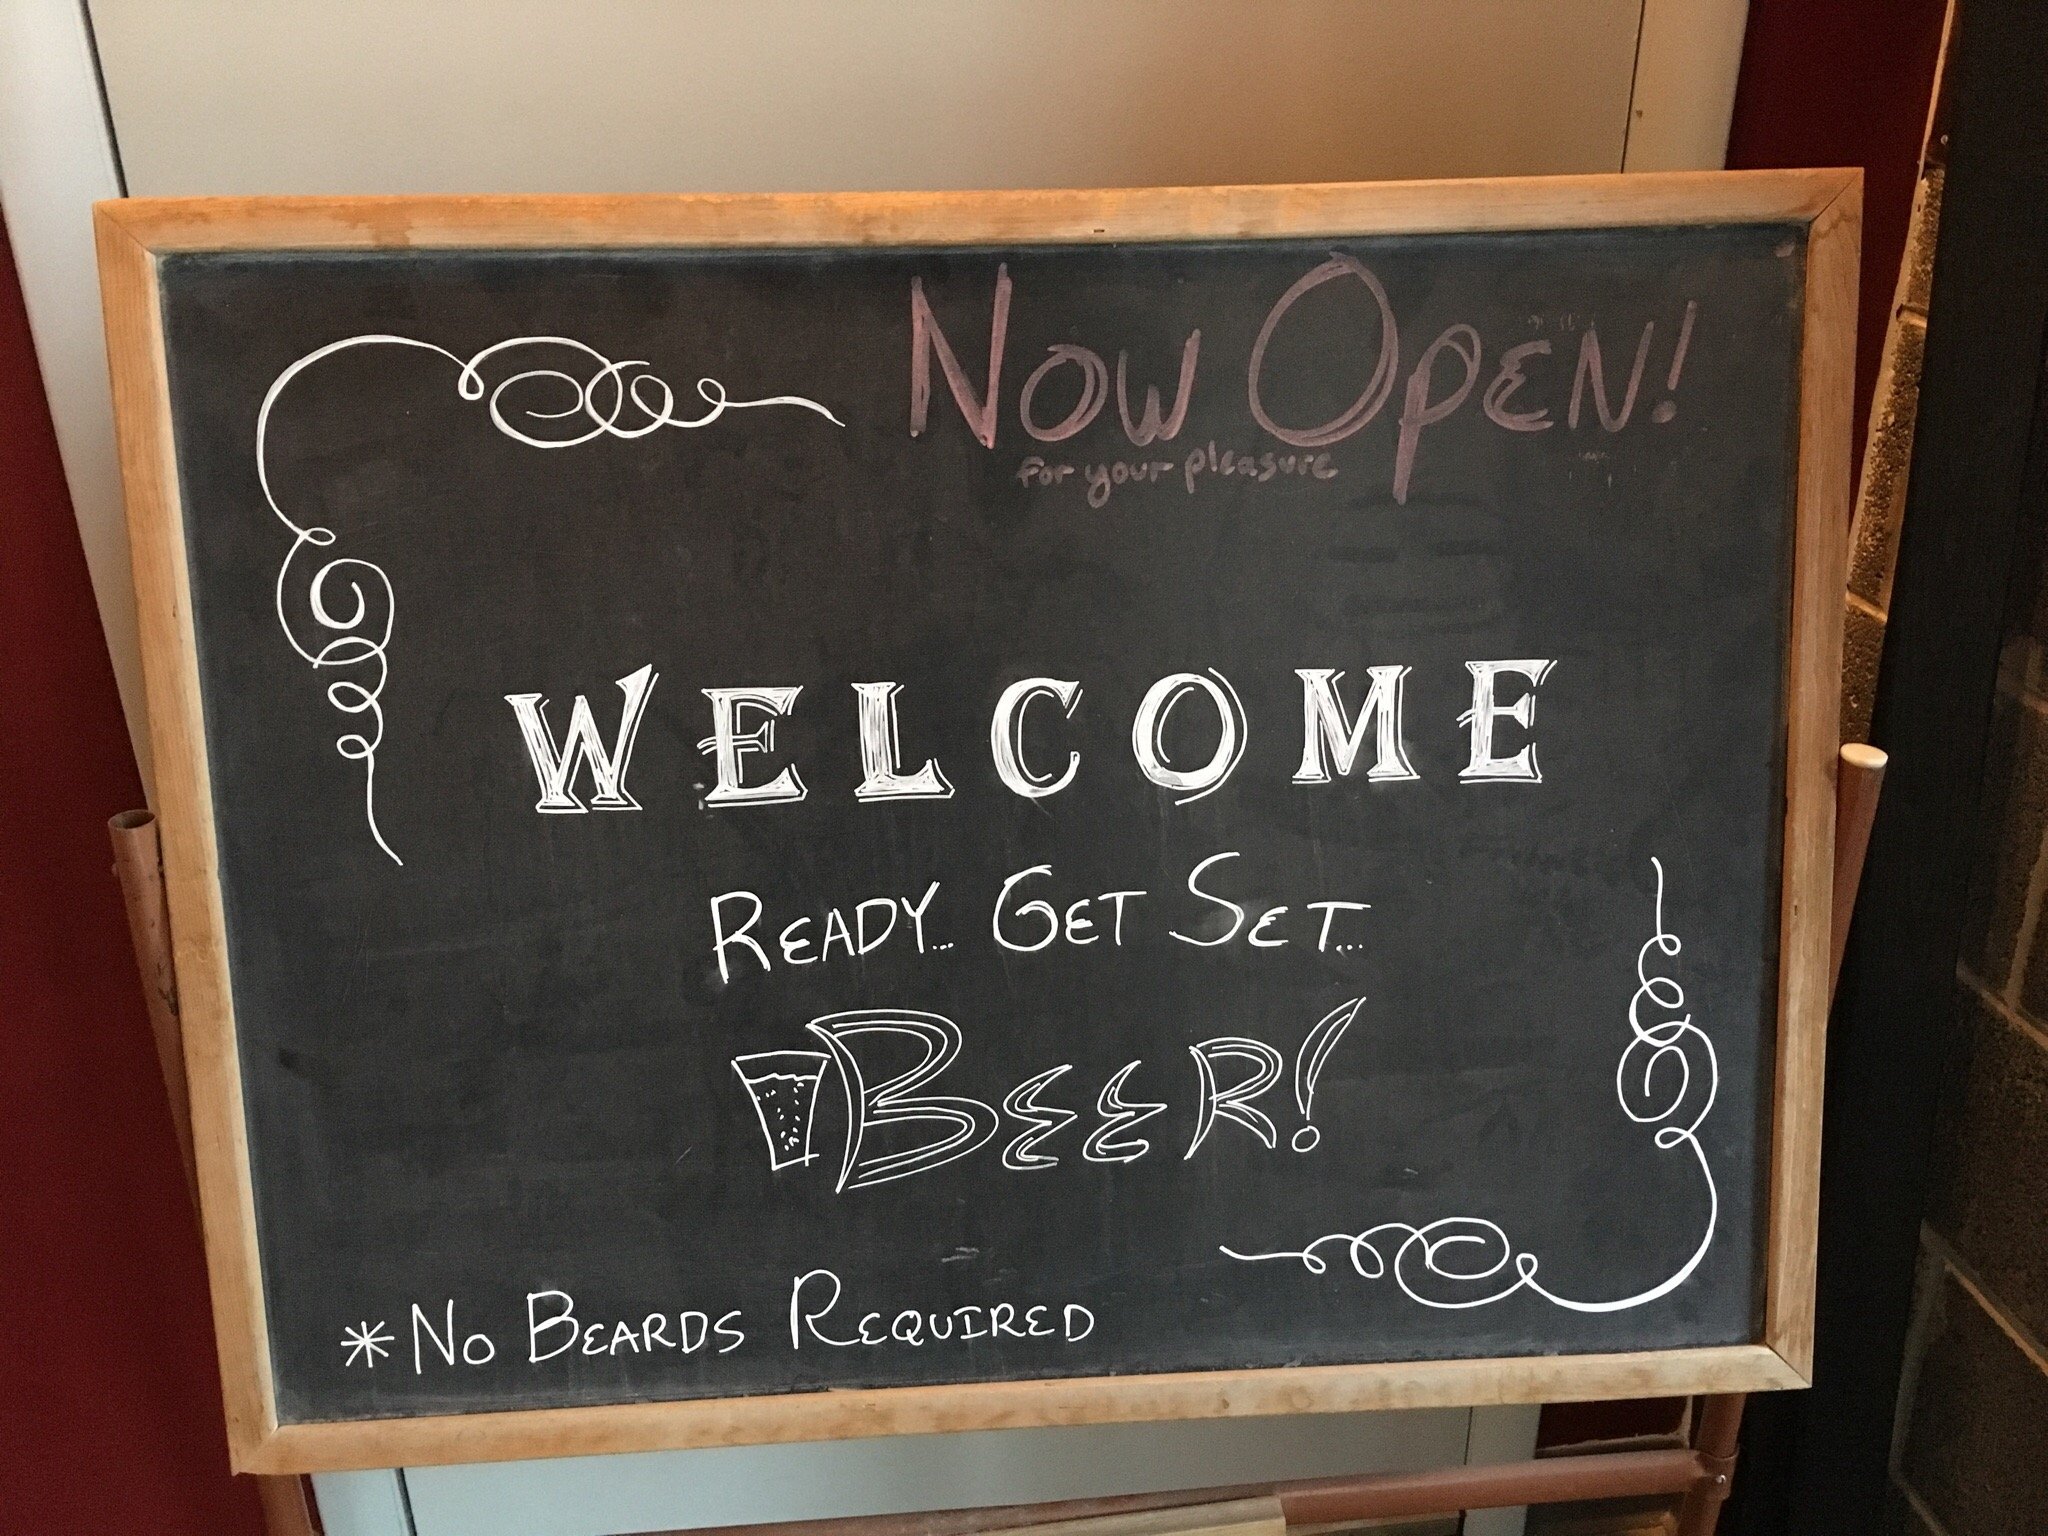 Now Open!
for your pleasure
WELCOME
Ready... Get Set...
Beer!
*No Beards Required